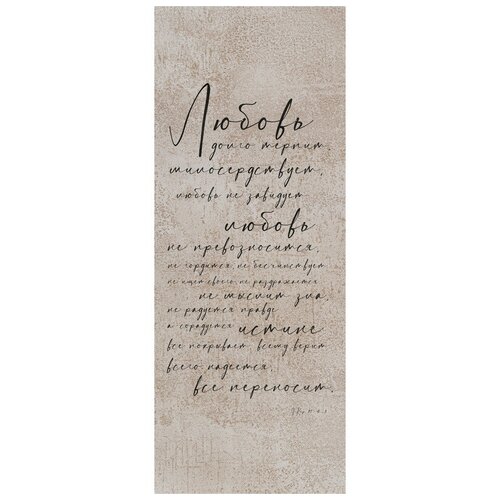 Любовь
долго терпит,
милосердствует,
любовь не завидует
любовь
не превозносится,
не гордится, не бесчинствует
не ищет своего, не раздражается
не мыслит зла,
не радуется правде
а сорадуется истине
все покрывает, всему верит
всего надеется,
все переносит.